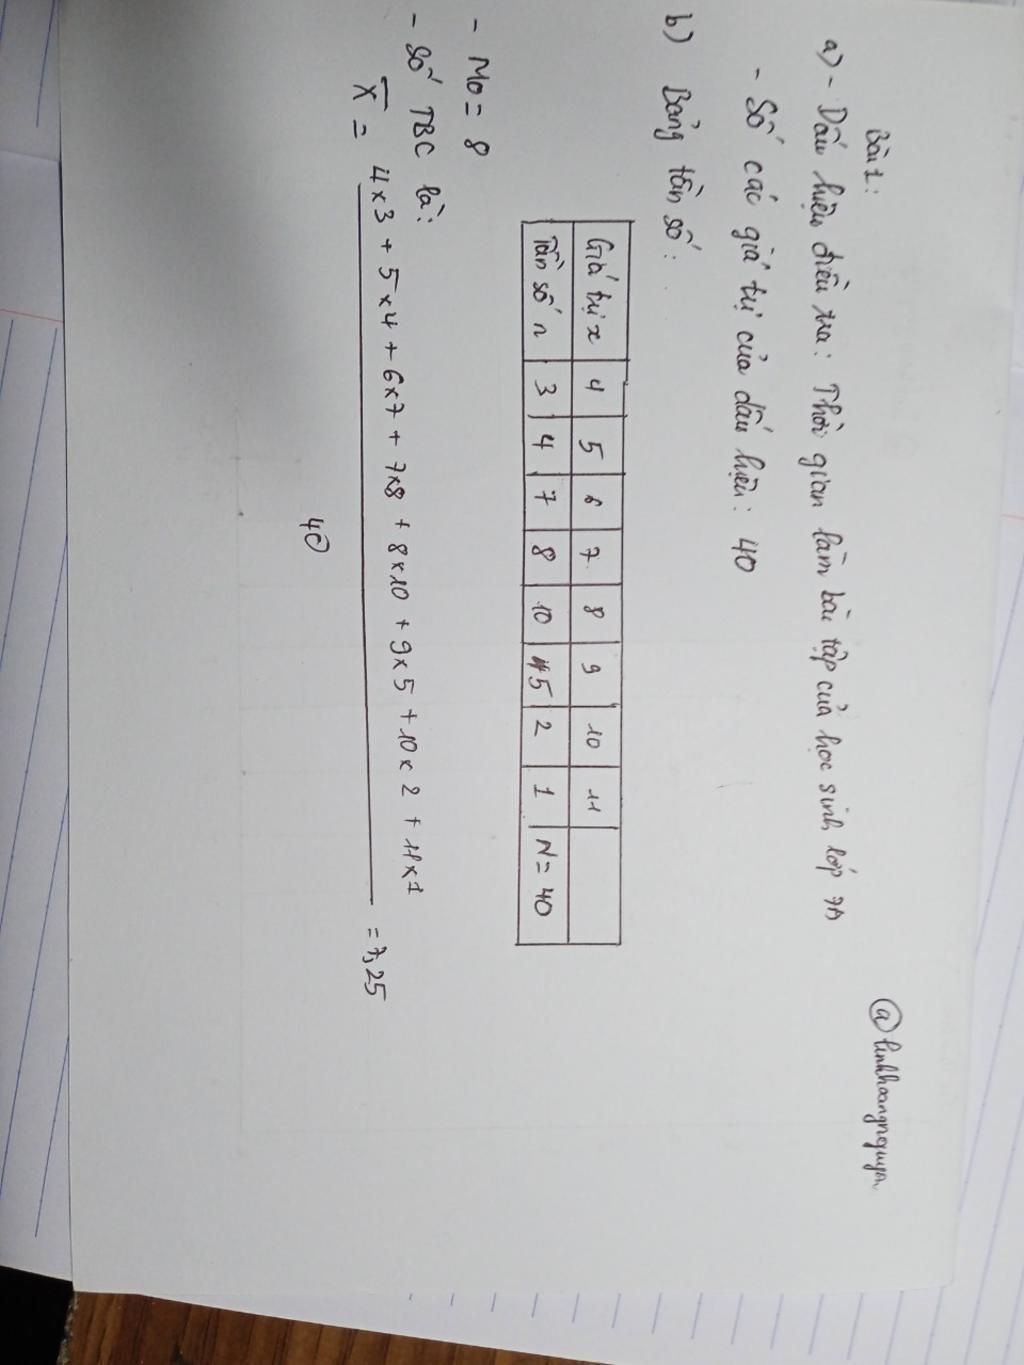 @linhhoangnguyen
Bài 1:
a) - Dấu hiệu điều tra: Thời gian làm bài tập của học sinh lớp 7A
- Số các giá trị của dấu hiệu: 40
b) Bảng tần số:
Giá trị x 4 5 6 7 8 9 10 11
Tần số n 3 4 7 8 10 5 2 1 N = 40
- Mo = 8
- Số TBC là:
X̅ = 4x3 + 5x4 + 6x7 + 7x8 + 8x10 + 9x5 + 10x2 + 11x1 = 7,25
40